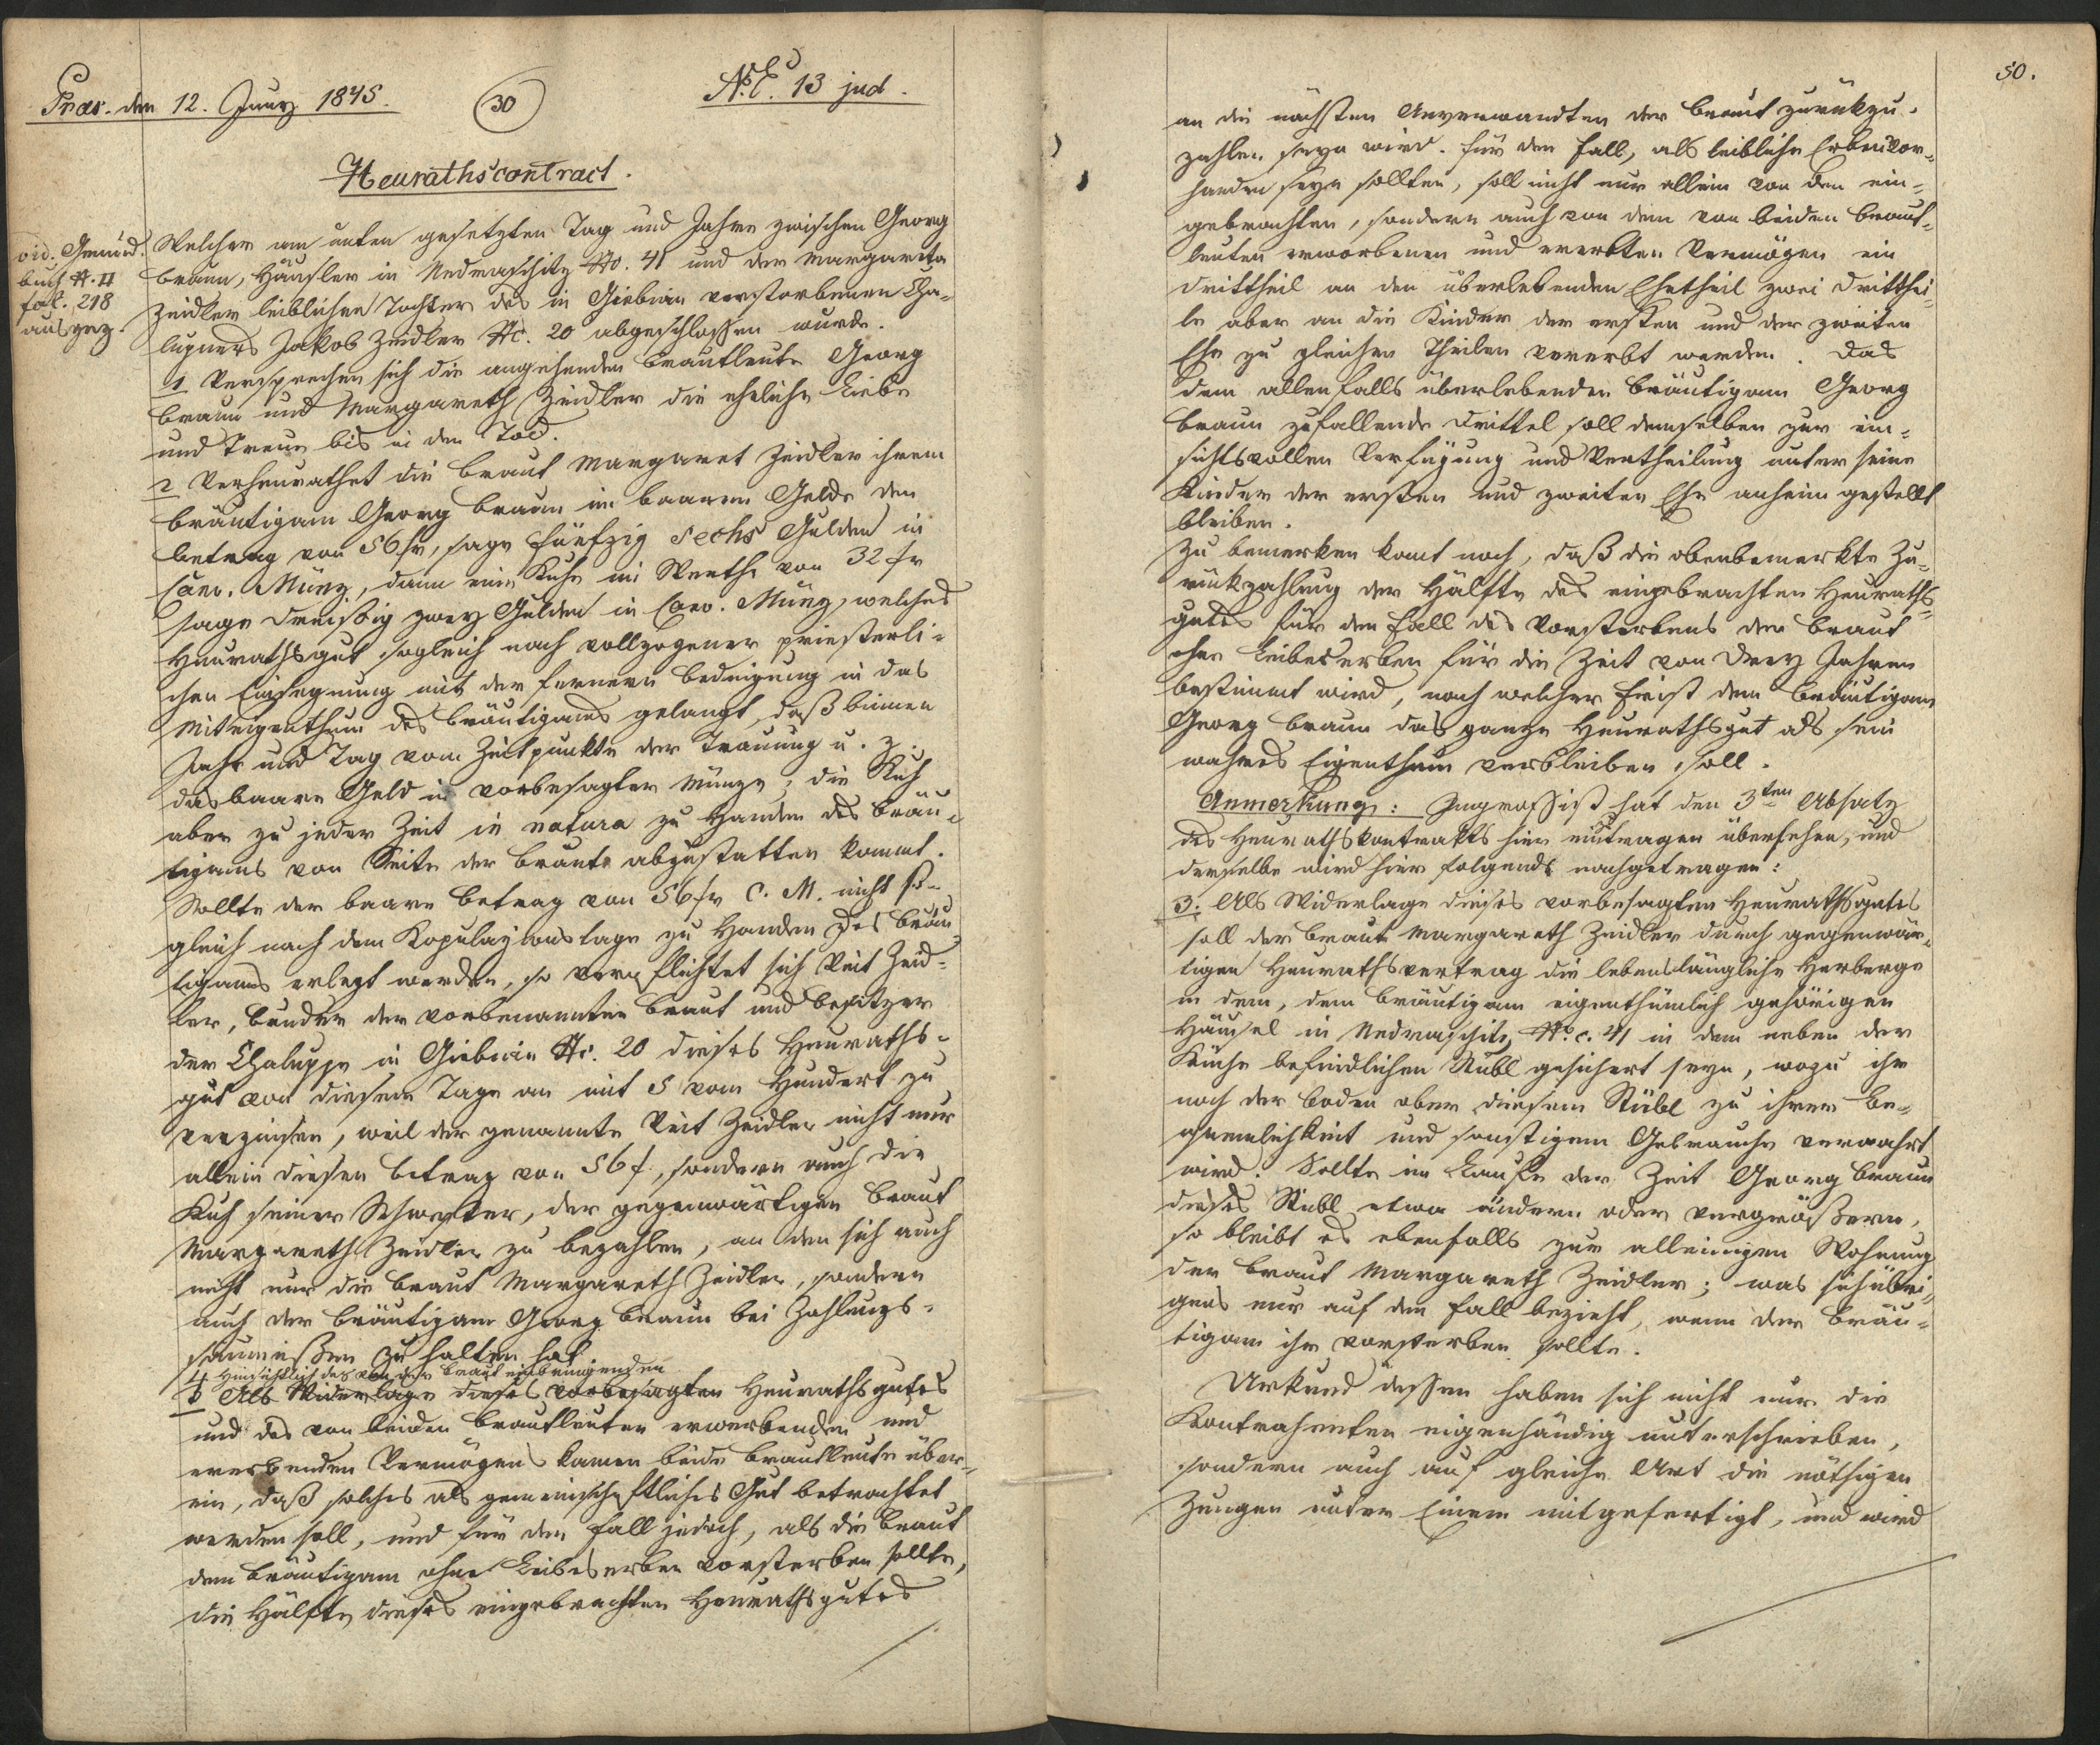 Präs. den 12. Juny 1845.
30
N. E. 13 jud.
Heurathscontract.
vid. Grund.
buch H. II
fol. 218
ausgez.
Welcher am unten gesetzten Tag und Jahre zwischen Georg
Braun, Häusler in Nedraschitz No. 41 und der Margareta
Zeidler leiblichen Tochter des in Giebian verstorbenen Cha-
lupners Jakob Zeidler Nc. 20 abgeschlossen wurde.
1 Versprechen sich die angehenden Brautleute Georg
Braun und Margareth Zeidler die eheliche Liebe
und Treue bis in den Tod.
2 Verheurathet die Braut Margaret Zeidler ihrem
Bräutigam Georg Braun im baaren Gelde den
Betrag von 56 fr, sage fünfzig sechs Gulden in
Conv. Münz, dann eine Kuh im Werthe von 32 fr
sage dreißig zwey Gulden in Conv. Münz, welches
Heurathsgut sogleich nach vollzogener priesterli-
chen Einsegnung mit der fernern Bedingung in das
Miteigenthum des Bräutigams gelangt, daß binnen
Jahr und Tag vom Zeitpunkte der Trauung u. z.
das baare Geld in vorbesagter Münze, die Kuh
aber zu jeder Zeit in natura zu Handen des Bräu-
tigams von Seite der Braut abzustatten kommt.
Sollte der baare Betrag von 56 fr C. M. nicht so-
gleich nach dem Kopulazionstage zu Handen des Bräu-
tigams erlegt werden, so verpflichtet sich Veit Zeid-
ler, Bruder der vorbenannten Braut und Besitzer
der Chaluppe in Giebian Nc. 20 dieses Heuraths-
gut von diesem Tage an mit 5 vom Hundert zu
verzinsen, weil der genannte Veit Zeidler nicht nur
allein diesen Betrag von 56 f, sondern auch die
Kuh seiner Schwester, der gegenwärtigen Braut
Margareth Zeidler zu bezahlen, an den sich auch
nicht nur die Braut Margareth Zeidler, sondern
auch der Bräutigam Georg Braun bei Zahlungs-
säumnißen zu halten hat.
4 Hinsichtlich des von der Braut einbringenden
3 Als Widerlage dieses vorbesagten Heurathsgutes
und des von beiden Brautleuten erwerbenden und
ererbenden Vermögens kamen beide Brautleute über-
ein, daß solches als gemeinschaftliches Gut betrachtet
werden soll, und für den Fall jedoch, als die Braut
dem Bräutigam ohne Leibeserben vorsterben sollte,
die Hälfte dieses eingebrachten Heurathsgutes
50.
an die nächsten Anverwandten der Braut zurükzu-
zahlen seyn wird. Für den Fall, als leibliche Erben vor-
handen seyn sollten, soll nicht nur allein von den ein-
gebrachten, sondern auch von dem von beiden Braut-
leuten erworbenen und ererbten Vermögen ein
Drittheil an den überlebenden Ehetheil zwei Dritthei-
le aber an die Kinder der ersten und der zweiten
Ehe zu gleichen Theilen vererbt werden. Das
dem allenfalls überlebenden Bräutigam Georg
Braun zufallende Drittel soll demselben zur ein-
sichtsvollen Verfügung und Vertheilung unter seine
Kinder der ersten und zweiten Ehe anheim gestellt
bleiben.
Zu bemerken komt noch, daß die obenbemerkte Zu-
rükzahlung der Hälfte des eingebrachten Heuraths-
gutes für den Fall des Vorsterbens der Braut
ohne Leibeserben für die Zeit von drey Jahren
bestimmt wird, nach welcher Frist dem Bräutigam
Georg Braun das ganze Heurathsgut als sein
wahres Eigenthum verbleiben soll.
Anmerkung: Ingrossist hat den 3ten Absatz
des Heurathskontrakts hier einzutragen übersehen, und
derselbe wird hier folgends nachgetragen:
3. Als Widerlage dieses vorbesagten Heurathsgutes
soll der Braut Margareth Zeidler durch gegenwär-
tigen Heurathsvertrag die lebenslängliche Herberge
in dem, dem Bräutigam eigenthümlich gehörigen
Häusel in Nedraschitz No. c. 41 in dem neben der
Küche befindlichen Stübl gesichert seyn, wozu ihr
noch der Boden ober diesem Stübl zu ihrer Be-
quemlichkeit und sonstigem Gebrauche verwahrt
wird. Sollte im Laufe der Zeit Georg Braun
dieses Stübl etwa ändern oder vergrößern,
so bleibt es ebenfalls zur alleinigen Wohnung
der Braut Margareth Zeidler; was sich übri-
gens nur auf den Fall bezieht, wenn der Bräu-
tigam ihr vorsterben sollte.
Urkund dessen haben sich nicht nur die
Kontrahenten eigenhändig unterschrieben,
sondern auch auf gleiche Art die nöthigen
Zeugen unter Einem mitgefertigt, und wird